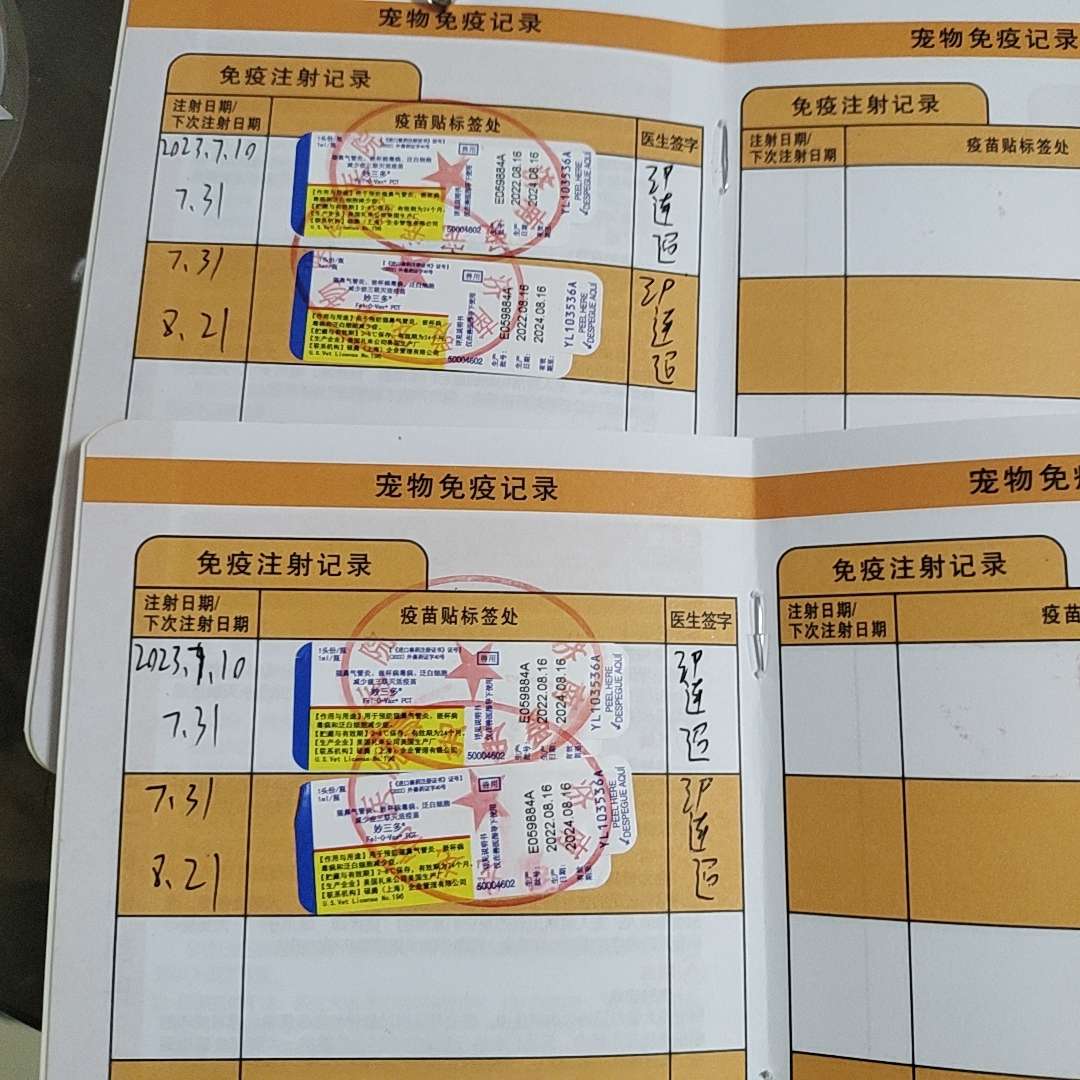 宠物免疫记录
宠物免疫记录
免疫注射记录
免疫注射记录
注射日期/
下次注射日期
疫苗贴标签处
医生签字
注射日期/
下次注射日期
疫苗贴标签处
2023.7.10
7.31
1头份/瓶
1ml/瓶
《进口兽药注册证书》证号
兽用
猫鼻气管炎、嵌杯病毒病、泛白细胞
减少症三联灭活疫苗
妙三多®
Fel-O-Vax® PCT
U.S.Vet License No.196
50004602
生产批号:
E059884A
生产日期:
2022.08.16
有效期至:
2024.08.16
YL103536A
PEEL HERE
DESPEGUE AQUÍ
7.31
8.21
1头份/瓶
兽用
猫鼻气管炎、嵌杯病毒病、泛白细胞
减少症三联灭活疫苗
妙三多®
Fel-O-Vax® PCT
U.S.Vet License No.196
50004602
生产批号:
E059884A
生产日期:
2022.08.16
有效期至:
2024.08.16
YL103536A
PEEL HERE
DESPEGUE AQUÍ
宠物免疫记录
宠物免
免疫注射记录
免疫注射记录
注射日期/
下次注射日期
疫苗贴标签处
医生签字
注射日期/
下次注射日期
疫苗
2023.7.10
7.31
1头份/瓶
1ml/瓶
《进口兽药注册证书》证号
兽用
猫鼻气管炎、嵌杯病毒病、泛白细胞
减少症三联灭活疫苗
妙三多®
Fel-O-Vax® PCT
【作用与用途】用于预防猫鼻气管炎、嵌杯病
毒病和泛白细胞减少症。
【贮藏与有效期】2-8℃保存,有效期为24个月。
【生产企业】美国礼来公司美国生产厂
【联系机构】硕腾(上海)企业管理有限公司
U.S.Vet License No.196
详见说明书
仅在兽医指导下使用
50004602
E059884A
2022.08.16
2024.08.16
YL103536A
PEEL HERE
DESPEGUE AQUÍ
7.31
8.21
1头份/瓶
1ml/瓶
《进口兽药注册证书》证号
兽用
猫鼻气管炎、嵌杯病毒病、泛白细胞
减少症三联灭活疫苗
妙三多®
Fel-O-Vax® PCT
【作用与用途】用于预防猫鼻气管炎、嵌杯病
毒病和泛白细胞减少症。
【贮藏与有效期】2-8℃保存,有效期为24个月。
【生产企业】美国礼来公司美国生产厂
【联系机构】硕腾(上海)企业管理有限公司
U.S.Vet License No.196
详见说明书
仅在兽医指导下使用
50004602
生产批号:
E059884A
生产日期:
2022.08.16
有效期至:
2024.08.16
YL103536A
PEEL HERE
DESPEGUE AQUÍ